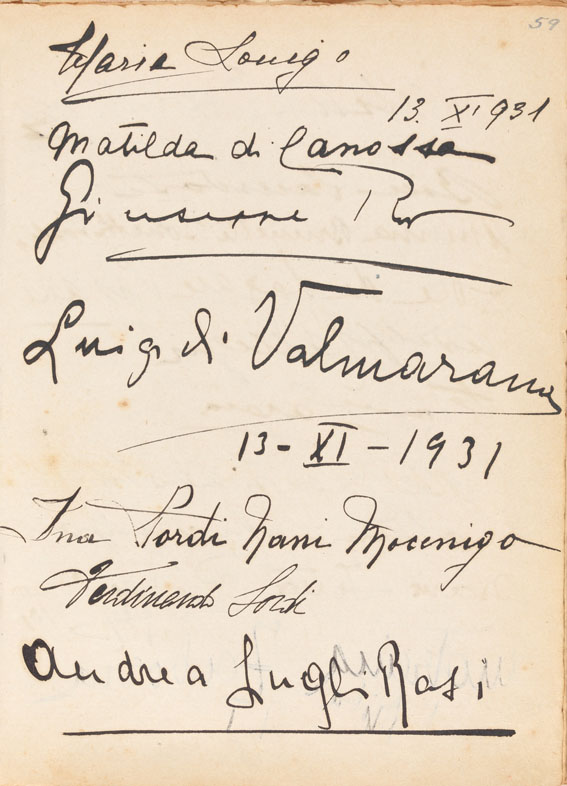 59
Maria Lonigo
13. XI 931
Matilda di Canossa
Giuseppe
Luigi di Valmarana
13 - XI - 1931
Ina Sordi Nani Mocenigo
Ferdinando Sordi
Andrea Lugli Rasi